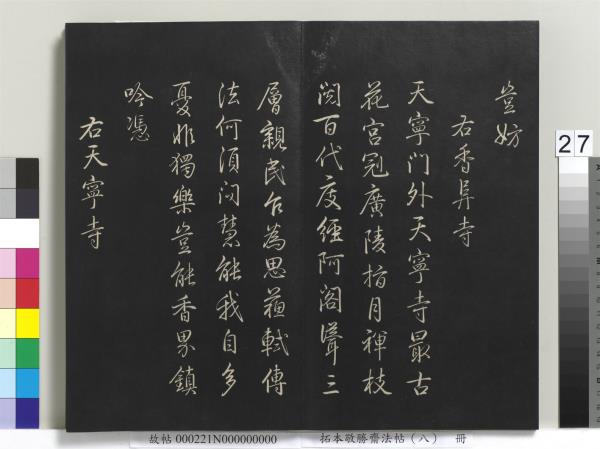 豈妨
右香阜寺
天寧門外天寧寺最古
花宮冠廣陵指月禪枝
閱百代度經阿閣聳三
層親民乍為思蘓軾傳
法何須問慧能我自多
憂非獨樂豈能香界鎮
吟憑
右天寧寺
27
故帖 000221N000000000
拓本敬勝齋法帖（八） 冊